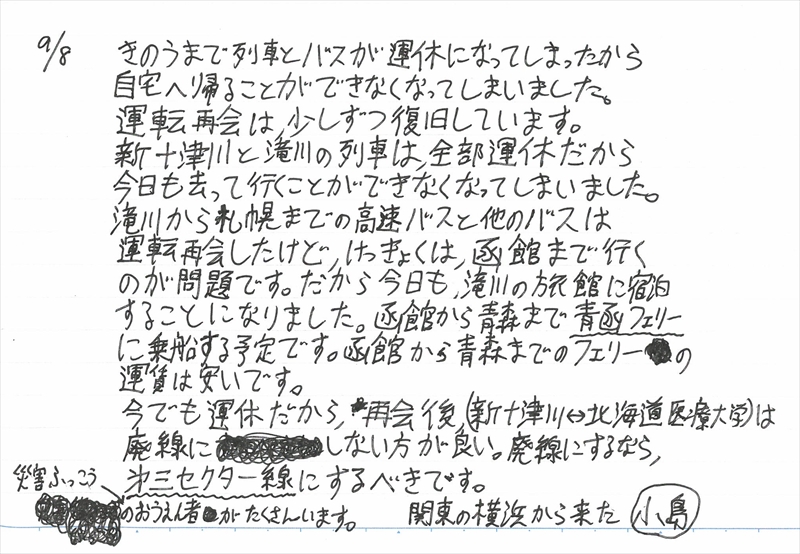 9/8
きのうまで列車とバスが運休になってしまったから
自宅へ帰ることができなくなってしまいました。
運転再会は、少しずつ復旧しています。
新十津川と滝川の列車は、全部運休だから
今日も去って行くことができなくなってしまいました。
滝川から札幌までの高速バスと他のバスは
運転再会したけど、けっきょくは、函館まで行く
のが問題です。だから今日も、滝川の旅館に宿泊
することになりました。函館から青森まで青函フェリー
に乗船する予定です。函館から青森までのフェリーの
運賃は安いです。
今でも運休だから、再会後、(新十津川⇔北海道医療大学)は
廃線にしない方が良い。廃線にするなら、
第三セクター線にするべきです。
災害ふっこう
のおうえん者がたくさんいます。
関東の横浜から来た 小島